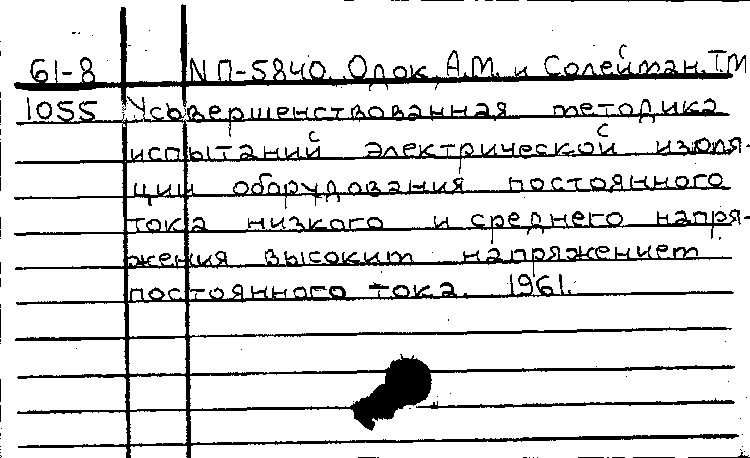 61-8 NП-5840. Орлок, А.М. и Солейман. Т.М
1055 Усовершенствованная методика
испытаний электрической изоля-
ции оборудования постоянного
тока низкого и среднего напря-
жения высоким напряжением
постоянного тока. 1961.